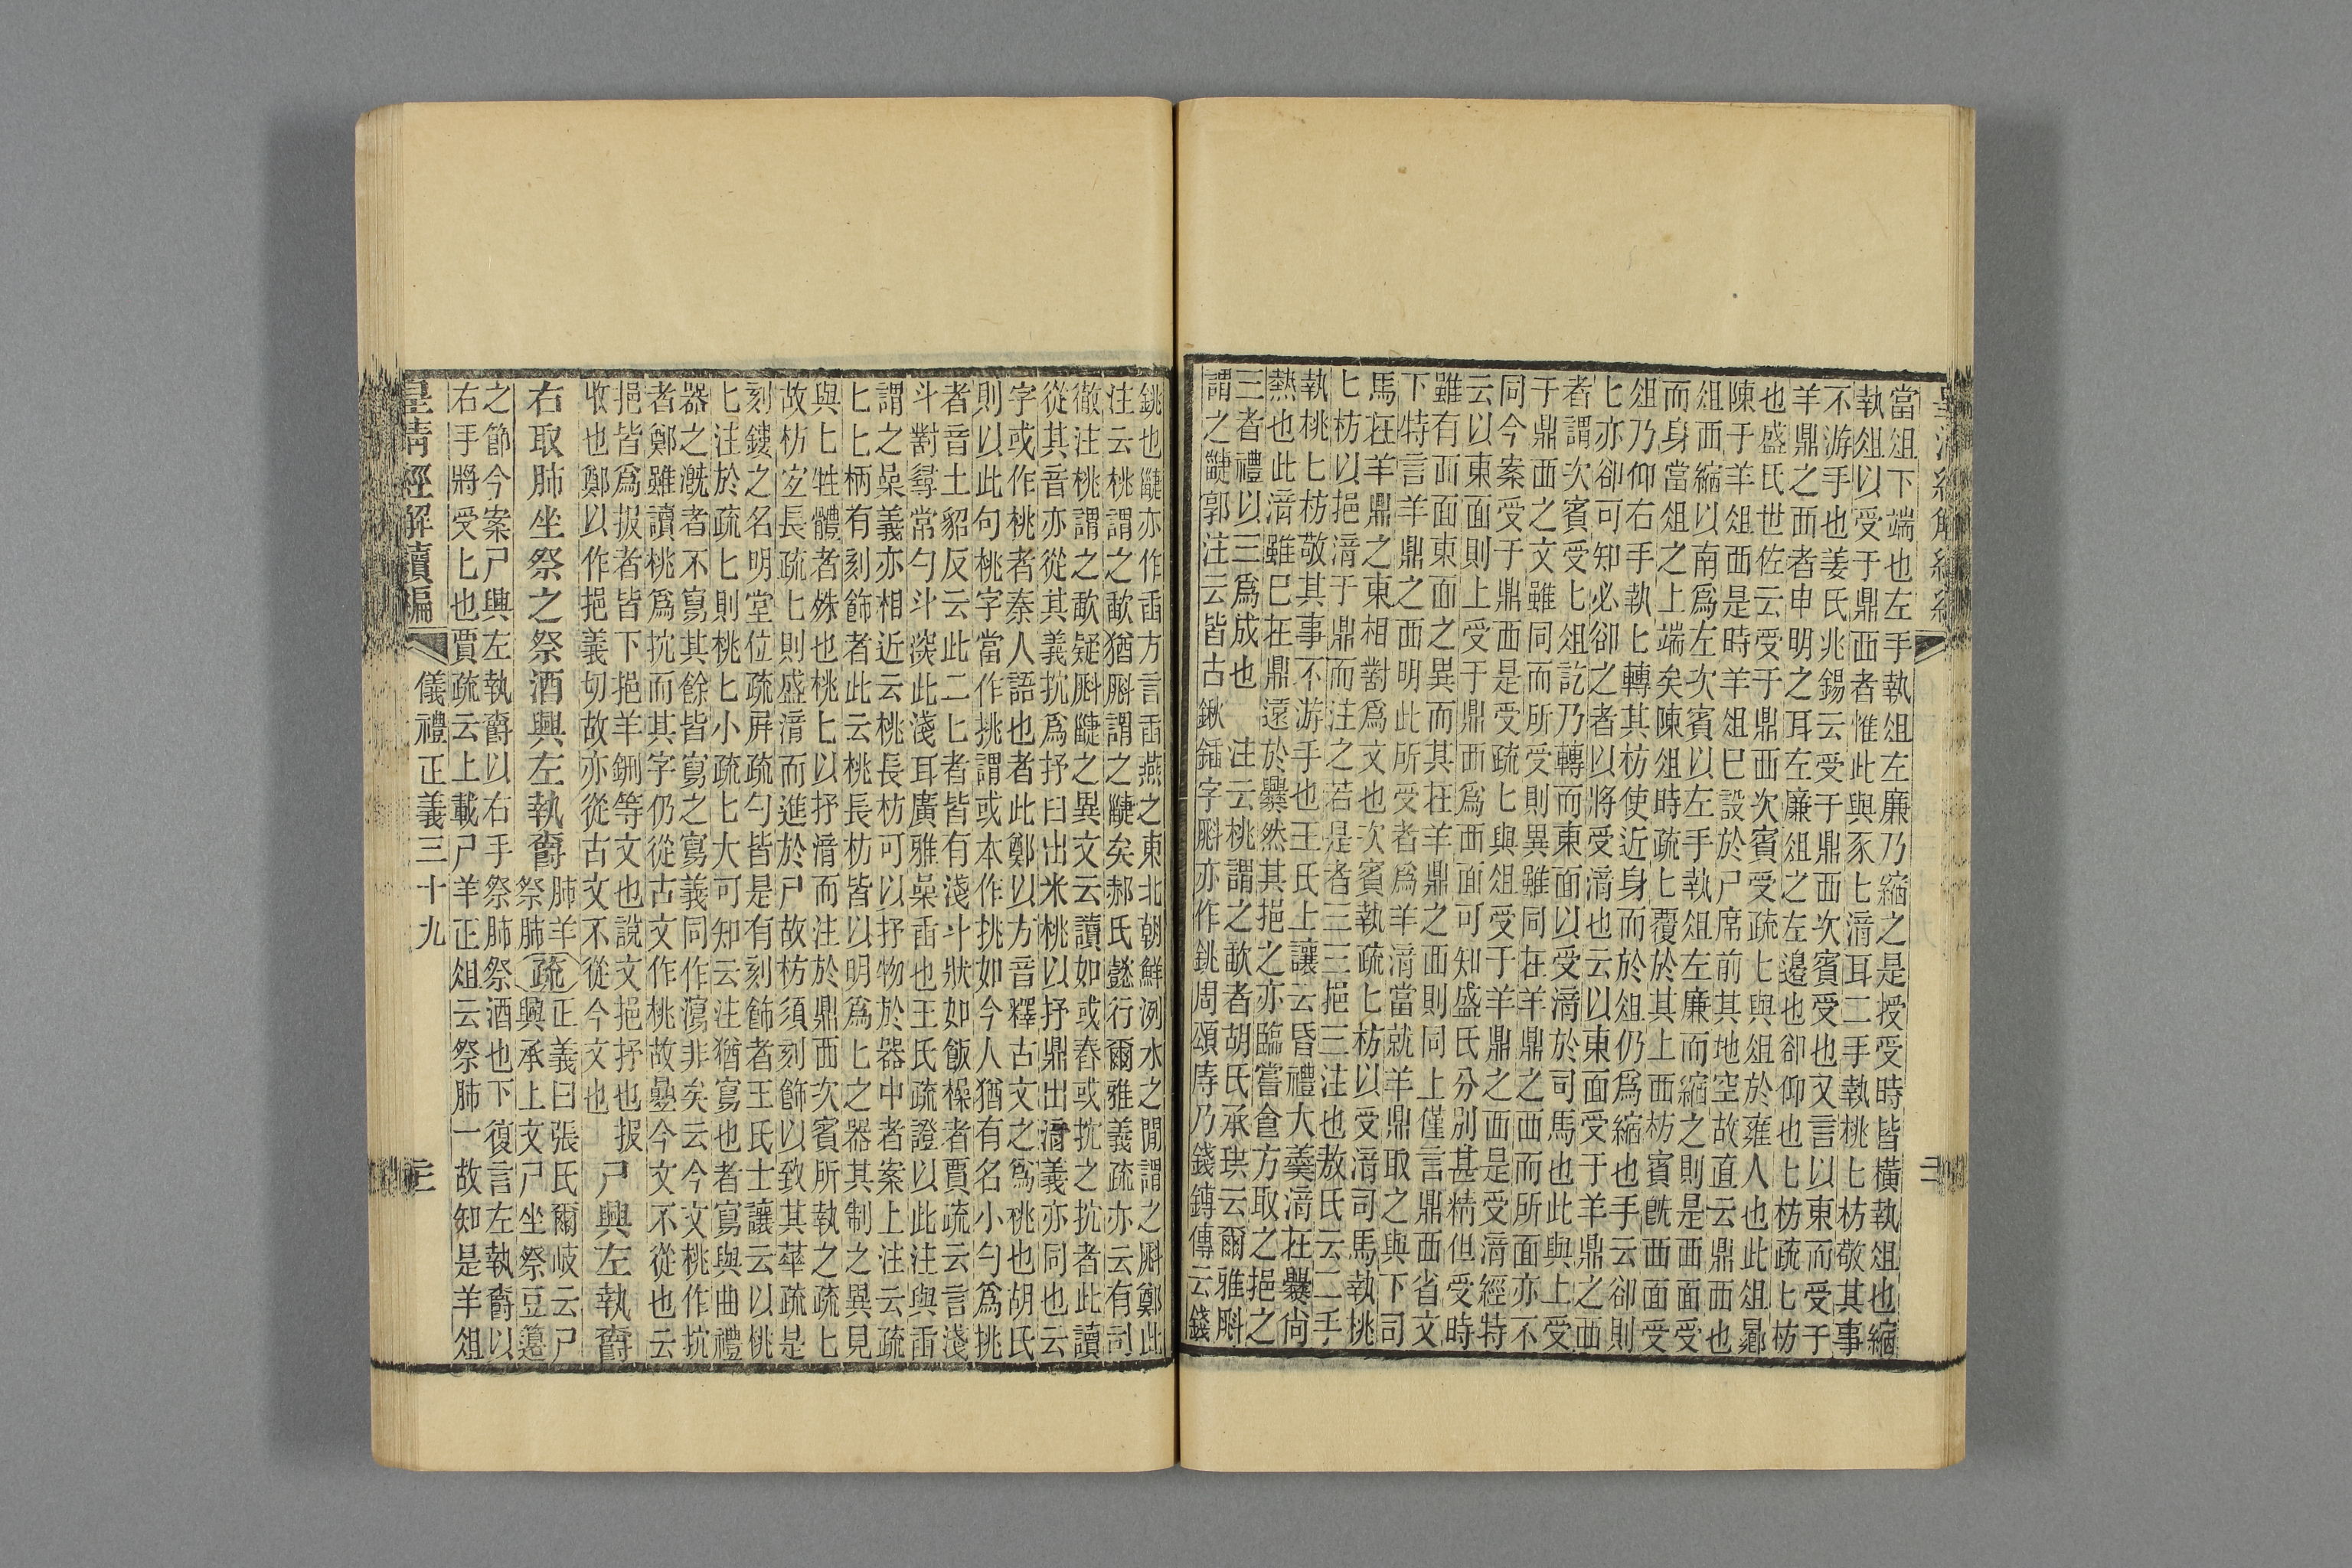 當俎下端也左手執俎左廉乃縮之是授受時皆橫執俎也縮
執俎以受于鼎西者惟此與豕匕湆耳二手執桃匕枋敬其事
不游手也姜氏兆錫云受于鼎西次賓受也又言以東而受于
羊鼎之西者申明之耳左廉俎之左邊也卻仰也匕枋疏匕枋
也盛氏世佐云受于鼎西次賓受疏匕與俎於雍人也此俎鄕
陳于羊俎西是時羊俎巳設於尸席前其地空故直云鼎西也
俎西縮以南爲左次賓以左手執俎左廉而縮之則是西面受
而身當俎之上端矣陳俎時疏匕覆於其上西枋賓旣西面受
俎乃仰右手執匕轉其枋使近身而於俎仍爲縮也手云卻則
匕亦卻可知必卻之者以將受湆也云以東面受于羊鼎之西
者謂次賓受匕俎訖乃轉而東面以受湆於司馬也此與上受
于鼎西之文雖同而所受則異雖同在羊鼎之西而所面亦不
同今案受于鼎西是受疏匕與俎受于羊鼎之西是受湆經特
云以東面則上受于鼎西爲西面可知盛氏分別甚精但受時
雖有西面東面之異而其在羊鼎之西則同上僅言鼎西省文
下特言羊鼎之西明此所受者爲羊湆當就羊鼎取之與下司
馬在羊鼎之東相對爲文也次賓執疏匕枋以受湆司馬執桃
匕枋以挹湆于鼎而注之若是者三三挹三注也敖氏云二手
執桃匕枋敬其事不游手也王氏士讓云昏禮大羹湆在爨尙
熱也此湆雖巳在鼎遠於爨然其挹之亦臨嘗食方取之挹之
三者禮以三爲成也 注云桃謂之歃者胡氏承珙云爾雅㪺
謂之疀郭注云皆古鍬鍤字㪺亦作銚周頌庤乃錢鎛傳云錢
銚也疀亦作臿方言臿燕之東北朝鮮洌水之閒謂之㪺鄭此
注云桃謂之歃猶㪺謂之疀矣郝氏懿行爾雅義疏亦云有司
徹注桃謂之歃疑㪺疀之異文云讀如或舂或抗之抗者此讀
從其音亦從其義抗爲抒臼出米桃以抒鼎出湆義亦同也云
字或作桃者秦人語也者此鄭以方音釋古文之爲桃也胡氏
則以此句桃字當作挑謂或本作挑如今人猶有名小勺爲挑
者音土貂反云此二匕者皆有淺斗狀如飯橾者賈疏云言淺
斗對尋常勺斗深此淺耳廣雅喿臿也王氏疏證以此注與臿
謂之喿義亦相近云桃長枋可以抒物於器中者案上注云疏
匕匕柄有刻飾者此云桃長枋皆以明爲匕之器其制之異見
與匕牲體者殊也桃匕以抒湆而注於鼎西次賓所執之疏匕
故枋宐長疏匕則盛湆而進於尸故枋須刻飾以致其華疏是
刻鏤之名明堂位疏屏疏勺皆是有刻飾者王氏士讓云以桃
匕注於疏匕則桃匕小疏匕大可知云注猶寫也者寫與曲禮
器之漑者不寫其餘皆寫之寫義同作瀉非矣云今文桃作抗
者鄭雖讀桃爲抗而其字仍從古文作桃故疊今文不從也云
挹皆爲扱者皆下挹羊鉶等文也說文挹抒也扱 尸興左執爵
收也鄭以作挹義切故亦從古文不從今文也
右取肺坐祭之祭酒興左執爵肺羊
祭肺疏正義曰張氏爾岐云尸
興承上文尸坐祭豆籩
之節今案尸興左執爵以右手祭肺祭酒也下復言左執爵以
右手將受匕也賈疏云上載尸羊正俎云祭肺一故知是羊俎
皇淸經解續編 儀禮正義三十九